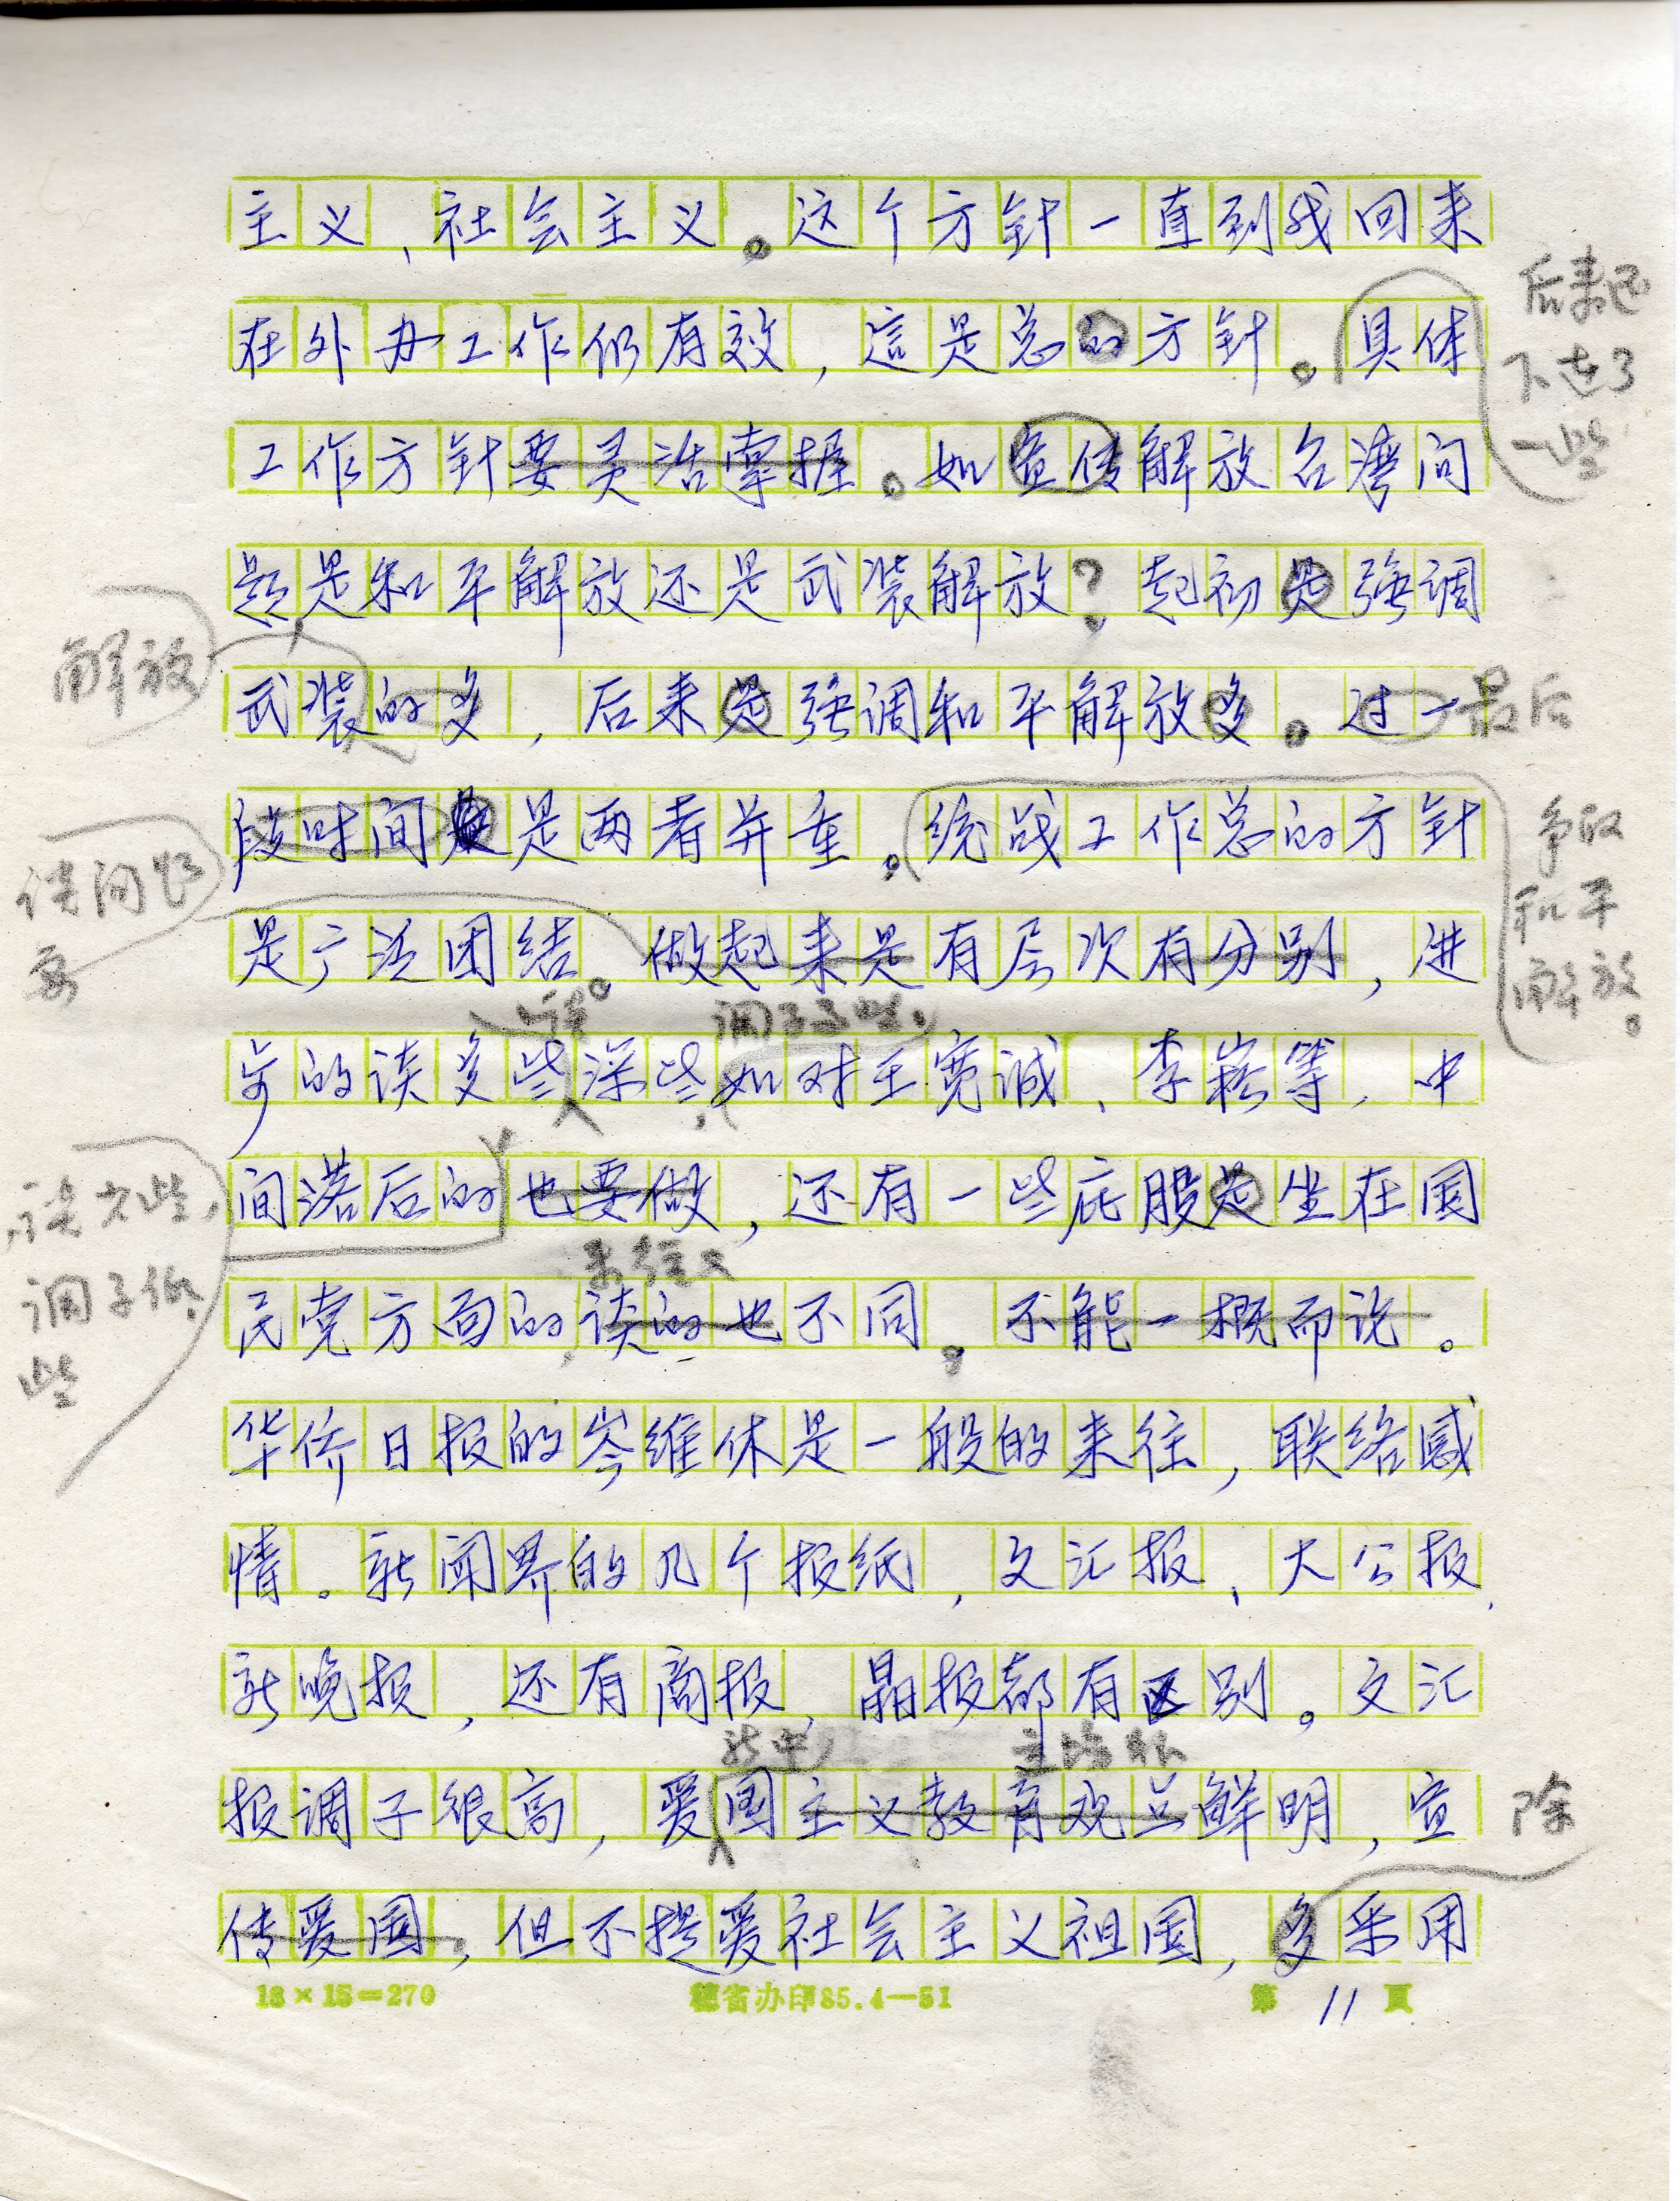 主义、社会主义。这个方针一直到我回来
后来还
在外办工作仍有效，這是总的方针。具体
一些
工作方针要灵活掌握。如宣传解放台湾问
题是和平解放还是武装解放？起初是强调
解放
武装的多，后来是强调和平解放多。过一
最后
段时间是两者并重。统战工作总的方针
争取
和平
解放。
是广泛团结。做起来是有层次有分别，进
调子高些。
步的谈多些深些，如对王宽诚、李崧等，中
间落后的也要做，还有一些屁股是坐在国
谈少些，
调子低
些
来往
民党方面的，谈的也不同。不能一概而论。
华侨日报的岑维休是一般的来往，联络感
情。新闻界的几个报纸，文汇报、大公报、
新晚报，还有商报、晶报都有区别。文汇
新中
立场和
报调子很高，爱国主义教育观点鲜明，宣
除
传爱国，但不提爱社会主义祖国，多采用
18×15=270
省办印85.4—51
第11页